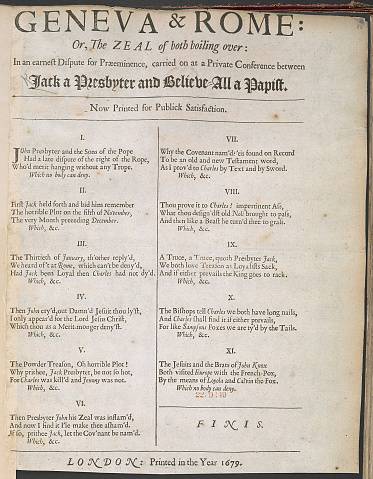 GENEVA & ROME:
Or, The ZEAL of both boiling over:
In an earnest Dispute for Præeminence, carried on at a Private Conference between
Jack a Presbyter and Believe-All a Papist.
Now Printed for Publick Satisfaction.
I.
John Presbyter and the Sons of the Pope
Had a late dispute of the right of the Rope,
Who'd merit hanging without any Trope.
Which no body can deny.
II.
First Jack held forth and bid him remember
The horrible Plot on the fifth of November,
The very Month preceding December.
Which, &c.
III.
The Thirtieth of January, th'other reply'd,
We heard of't at Rome, which can't be deny'd,
Had Jack been Loyal then Charles had not dy'd.
Which, &c.
IV.
Then John cry'd, out Damn'd Jesuit thou ly'st,
I only appear'd for the Lord Jesus Christ,
Which thou as a Merit-monger deny'st.
Which, &c.
V.
The Powder Treason, Oh horrible Plot!
Why prithee, Jack Presbyter, be not so hot,
For Charles was kill'd and Jemmy was not.
Which, &c.
VI.
Then Presbyter John his Zeal was inflam'd,
And now I find it I'le make thee asham'd.
If so, prithee Jack, let the Cov'nant be nam'd.
Which, &c.
VII.
Why the Covenant nam'd? 'tis found on Record
To be an old and new Testament word,
As I prov'd to Charles by Text and by Sword.
Which, &c.
VIII.
Thou prove it to Charles! impertinent Ass,
What thou design'dst old Noll brought to pass,
And then like a Beast he turn'd thee to grass.
Which, &c.
IX.
A Truce, a Truce, quoth Presbyter Jack,
We both love Treason as Loyalists Sack,
And if either prevails the King goes to rack.
Which, &c.
X.
The Bishops tell Charles we both have long nails,
And Charles shall find it if either prevails,
For like Sampsons Foxes we are ty'd by the Tails.
Which, &c.
XI.
The Jesuits and the Brats of John Knox
Both visited Europe with the French-Pox,
By the means of Loyola and Calvin the Fox.
Which no body can deny.
FINIS.
LONDON: Printed in the Year 1679.